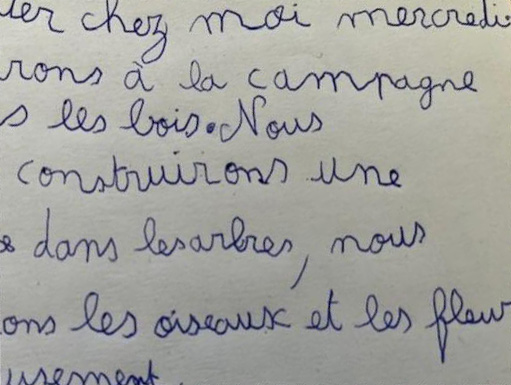 uer chez moi mercredi
rons à la campagne
s les bois. Nous
construirons une
e dans les arbres, nous
ons les oiseaux et les fleur
usement.